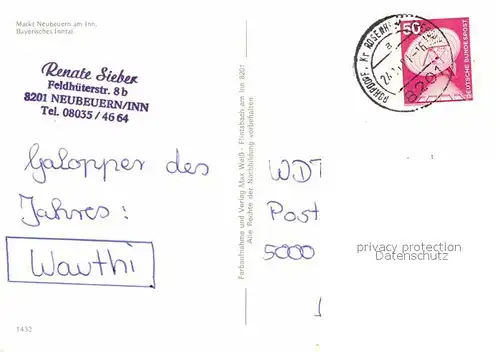 Markt Neubeuern am Inn,
Bayerisches Inntal
Renate Sieber
Feldhüterstr. 8b
8201 NEUBEUERN/INN
Tel. 08035/4664
Galopper des
Jahres:
Wauthi
1432
Farbaufnahme und Verlag Max Weiß - Flintsbach am Inn 8201
Alle Rechte der Nachbildung vorbehalten
ROHRDORF, Kr ROSENHEIM
8201
50
DEUTSCHE BUNDESPOST
WDT
Post
5000
privacy protection
Datenschutz